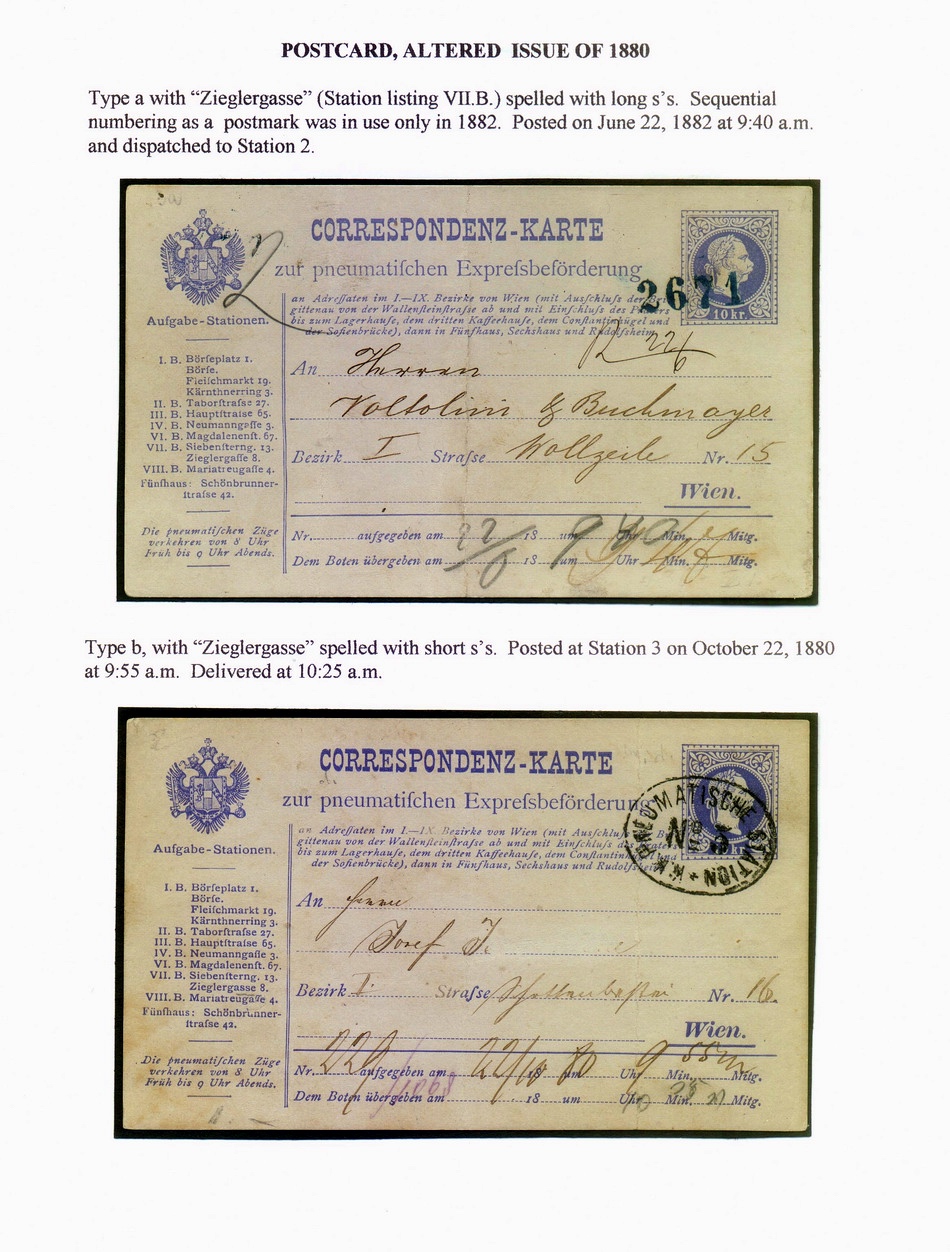 POSTCARD, ALTERED ISSUE OF 1880
Type a with “Zieglergasse” (Station listing VII.B.) spelled with long s’s. Sequential
numbering as a postmark was in use only in 1882. Posted on June 22, 1882 at 9:40 a.m.
and dispatched to Station 2.
2
CORRESPONDENZ-KARTE
zur pneumatiſchen Expreſsbeförderung
2671
10 kr.
an Adreſſaten im I.—IX. Bezirke von Wien (mit Ausſchluſs der
gittenau von der Wallenſteinſtraſse ab und mit Einſchluſs des Praters
bis zum Lagerhauſe, dem dritten Kaffeehauſe, dem Conſtantinhügel und
der Soſienbrücke), dann in Fünfhaus, Sechshaus und Rudolfsheim.
Aufgabe-Stationen.
I. B. Börſeplatz 1.
Börſe.
Fleiſchmarkt 19.
Kärnthnerring 3.
II. B. Taborſtraſse 27.
III. B. Hauptſtraſse 65.
IV. B. Neumanngaſſe 3.
VI. B. Magdalenenſt. 67.
VII. B. Siebenſterng. 13.
Zieglergaſſe 8.
VIII. B. Mariatreugaſſe 4.
Fünfhaus: Schönbrunner-
ſtraſse 42.
Die pneumatiſchen Züge
verkehren von 8 Uhr
Früh bis 9 Uhr Abends.
An Herren
Voltolini & Buchmayer
Bezirk I Straſse Wollzeile Nr. 15
Wien.
Nr. aufgegeben am 22/6 18 um 9 Uhr 40 Min. Mitg.
Dem Boten übergeben am 18 um Uhr Min. Mitg.
Type b, with “Zieglergasse” spelled with short s’s. Posted at Station 3 on October 22, 1880
at 9:55 a.m. Delivered at 10:25 a.m.
CORRESPONDENZ-KARTE
zur pneumatiſchen Expreſsbeförderung
K.K. PNEUMATISCHE STATION
an Adreſſaten im I.—IX. Bezirke von Wien (mit Ausſchluſs
gittenau von der Wallenſteinſtraſse ab und mit Einſchluſs des Praters
bis zum Lagerhauſe, dem dritten Kaffeehauſe, dem Conſtantinhügel und
der Soſienbrücke), dann in Fünfhaus, Sechshaus und Rudolfsheim.
Aufgabe-Stationen.
I. B. Börſeplatz 1.
Börſe.
Fleiſchmarkt 19.
Kärnthnerring 3.
II. B. Taborſtraſse 27.
III. B. Hauptſtraſse 65.
IV. B. Neumanngſſe 3.
VI. B. Magdalenenſt. 67.
VII. B. Siebenſterng. 13.
Zieglergasse 8.
VIII. B. Mariatreugaſſe 4.
Fünfhaus: Schönbrunner-
ſtraſse 42.
Die pneumatiſchen Züge
verkehren von 8 Uhr
Früh bis 9 Uhr Abends.
An Herrn
Josef
Bezirk I. Straſse Schottenbastei Nr. 16.
Wien.
Nr. aufgegeben am 22/10 18 um 80 Uhr 9 55 Min. Mitg.
Dem Boten übergeben am 18 um Uhr 10 Min. 25 Mitg.